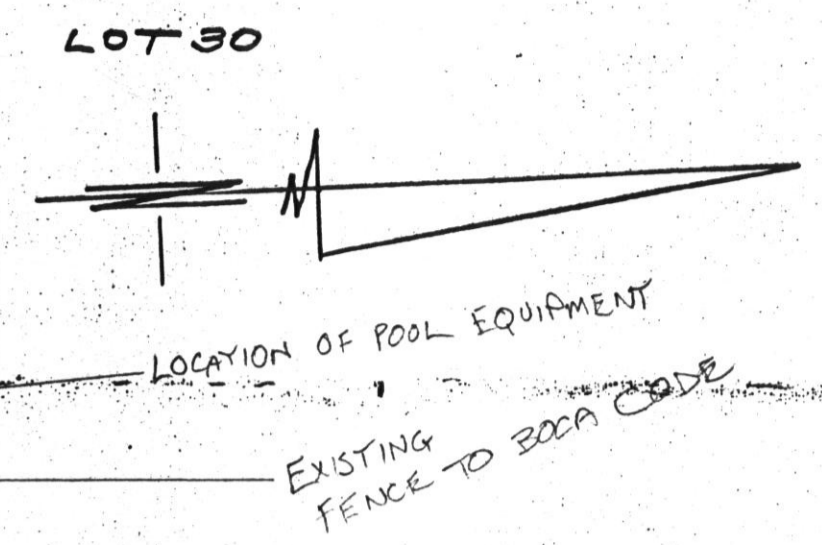 LOT 30
N
LOCATION OF POOL EQUIPMENT
EXISTING
FENCE TO BOCA CODE